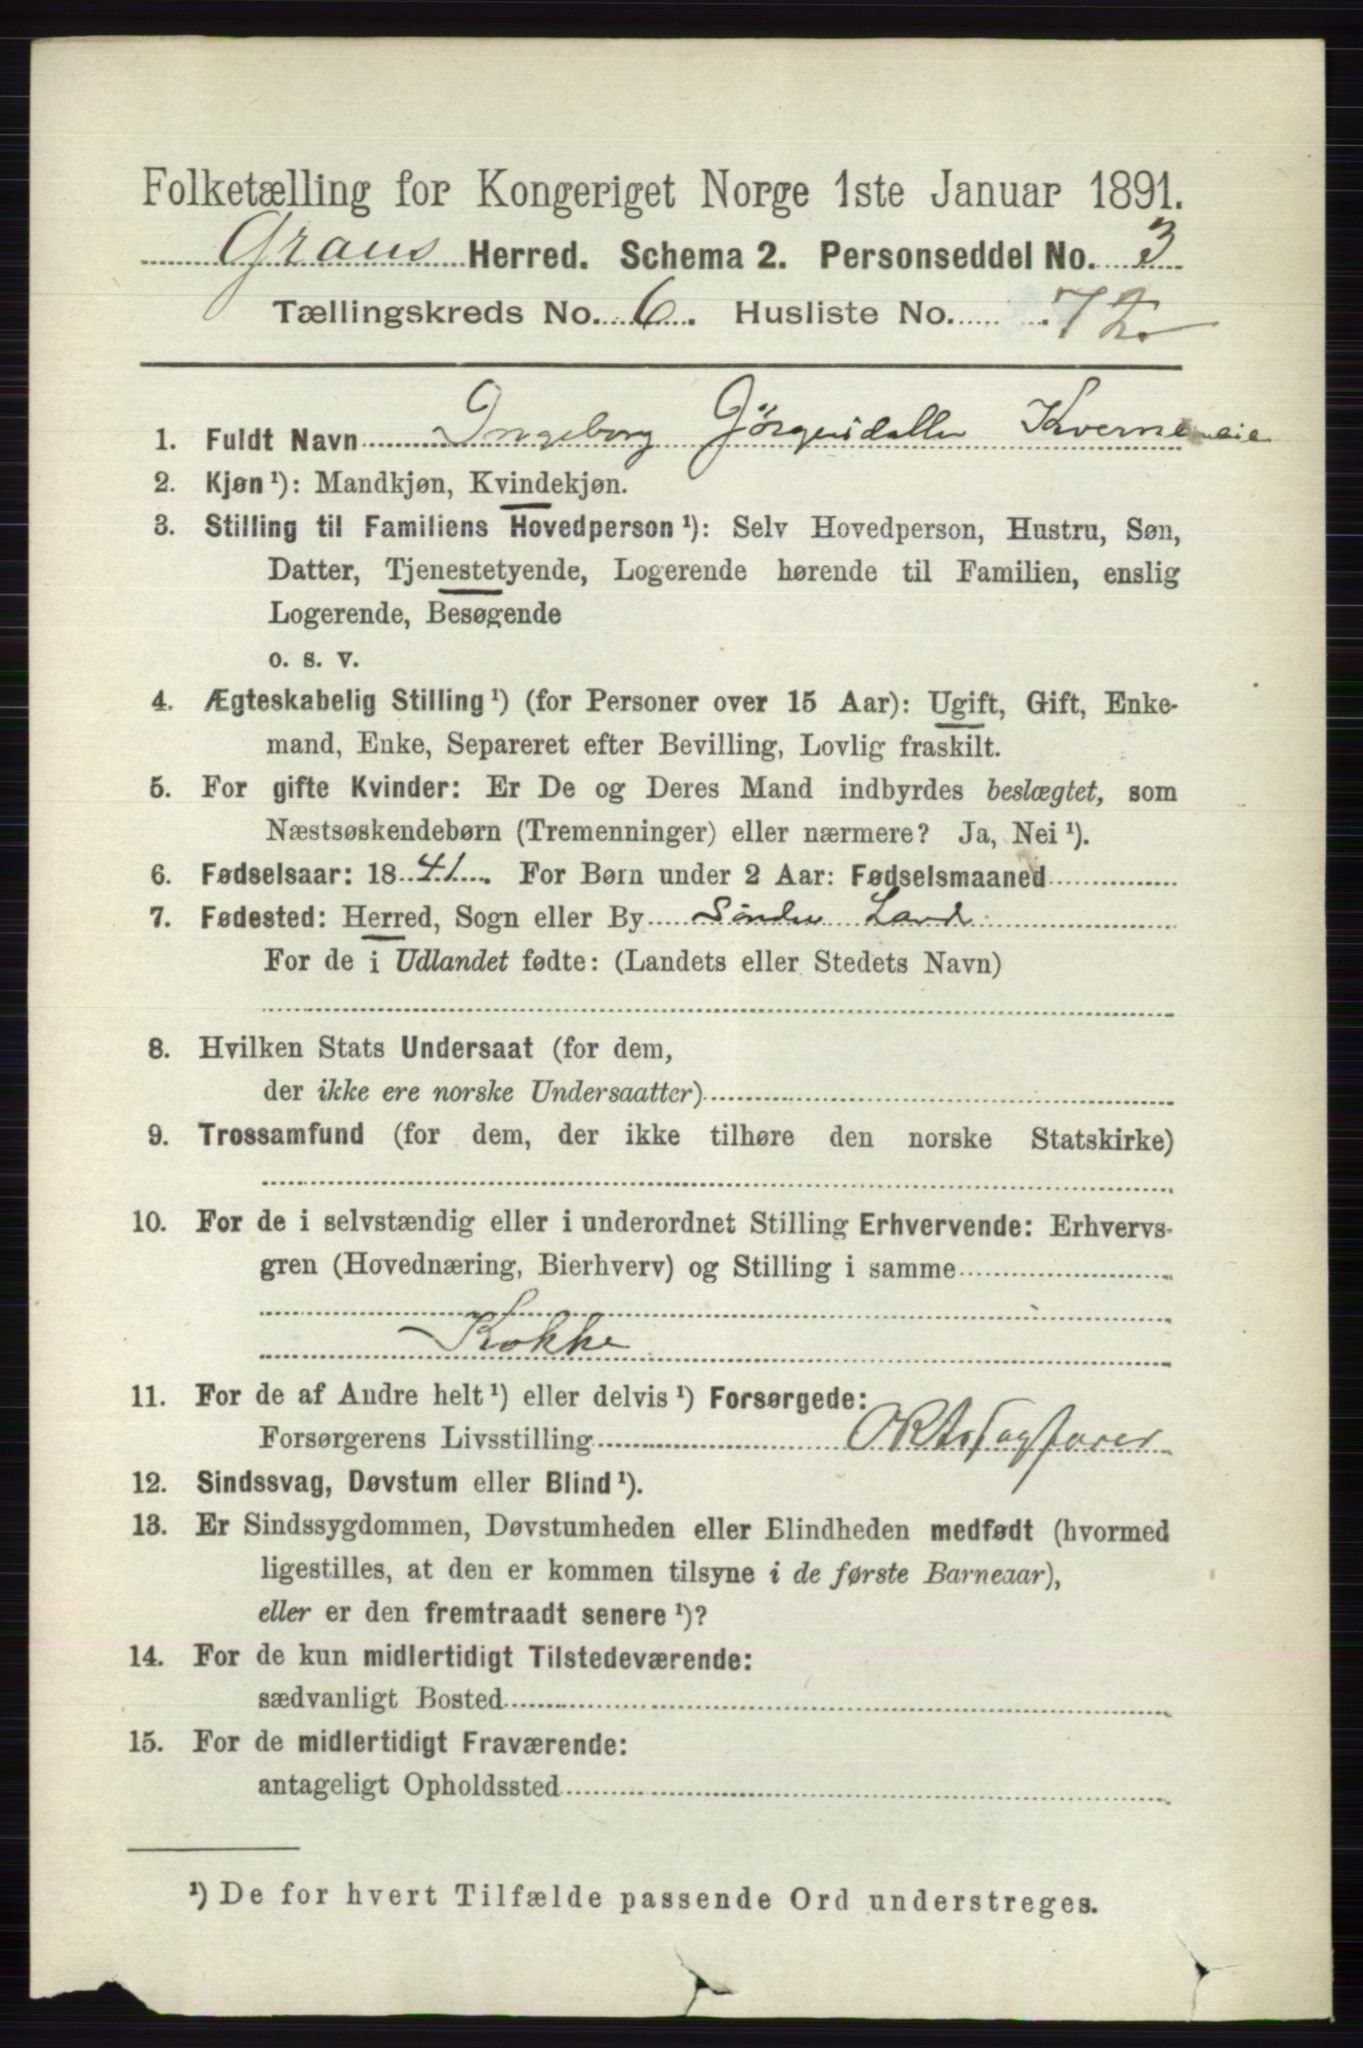 Folketælling for Kongeriget Norge 1ste Januar 1891.
Grans Herred. Schema 2. Personseddel No. 3
Tællingskreds No. 6. Husliste No. 72
1. Fuldt Navn Ingeborg Jörgensdatter
2. Kjøn ¹): Mandkjøn, Kvindekjøn.
3. Stilling til Familiens Hovedperson ¹): Selv Hovedperson, Hustru, Søn,
Datter, Tjenestetyende, Logerende hørende til Familien, enslig
Logerende, Besøgende
o. s. v.
4. Ægteskabelig Stilling ¹) (for Personer over 15 Aar): Ugift, Gift, Enke-
mand, Enke, Separeret efter Bevilling, Lovlig fraskilt.
5. For gifte Kvinder: Er De og Deres Mand indbyrdes beslægtet, som
Næstsøskendebørn (Tremenninger) eller nærmere? Ja, Nei ¹).
6. Fødselsaar: 1841. For Børn under 2 Aar: Fødselsmaaned
7. Fødested: Herred, Sogn eller By Söndre Land
For de i Udlandet fødte: (Landets eller Stedets Navn)
8. Hvilken Stats Undersaat (for dem,
der ikke ere norske Undersaatter)
9. Trossamfund (for dem, der ikke tilhøre den norske Statskirke)
10. For de i selvstændig eller i underordnet Stilling Erhvervende: Erhvervs-
gren (Hovednæring, Bierhverv) og Stilling i samme
Kokke
11. For de af Andre helt ¹) eller delvis ¹) Forsørgede:
Forsørgerens Livsstilling
12. Sindssvag, Døvstum eller Blind ¹).
13. Er Sindssygdommen, Døvstumheden eller Blindheden medfødt (hvormed
ligestilles, at den er kommen tilsyne i de første Barneaar),
eller er den fremtraadt senere ¹)?
14. For de kun midlertidigt Tilstedeværende:
sædvanligt Bosted
15. For de midlertidigt Fraværende:
antageligt Opholdssted
¹) De for hvert Tilfælde passende Ord understreges.